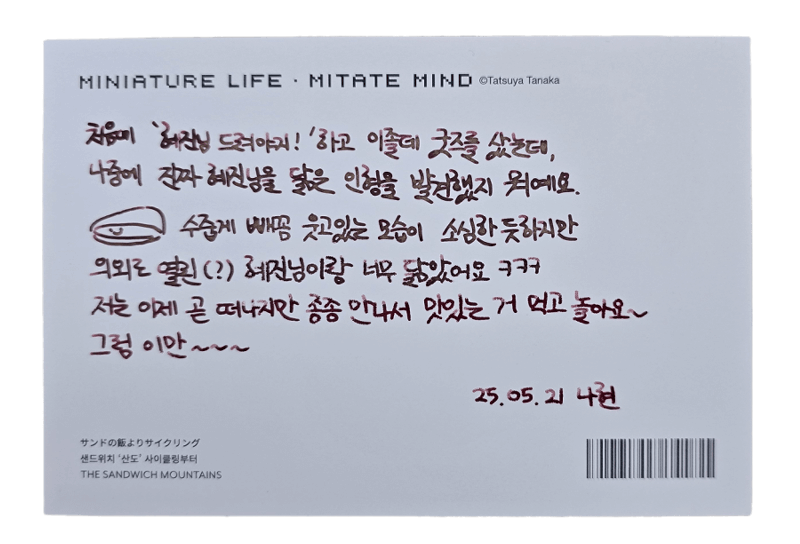 MINIATURE LIFE · MITATE MIND ©Tatsuya Tanaka
처음에 '혜진님 드려야지!' 하고 이졸데 굿즈를 샀는데,
나중에 진짜 혜진님을 닮은 인형을 발견했지 뭐예요.
수줍게 빼꼼 웃고있는 모습이 소심한 듯하지만
의외로 열린(?) 혜진님이랑 너무 닮았어요 ㅋㅋㅋ
저는 이제 곧 떠나지만 종종 만나서 맛있는 거 먹고 놀아요~
그럼 이만~~~
25.05.21 나현
サンドの飯よりサイクリング
샌드위치 '산도' 사이클링부터
THE SANDWICH MOUNTAINS